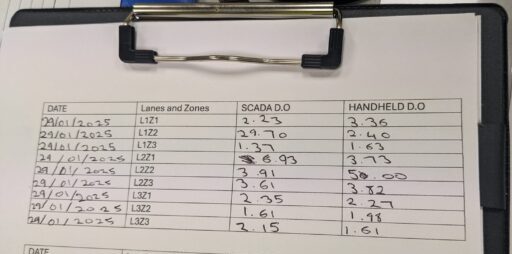 DATE Lanes and Zones SCADA D.O HANDHELD D.O
29/01/2025 L1Z1 2.23 3.36
29/01/2025 L1Z2 29.70 2.40
29/01/2025 L1Z3 1.37 1.63
29/01/2025 L2Z1 6.93 3.73
29/01/2025 L2Z2 3.91 5.00
29/01/2025 L2Z3 3.61 3.82
29/01/2025 L3Z1 2.35 2.27
29/01/2025 L3Z2 1.61 1.98
29/01/2025 L3Z3 2.15 1.61
DATE Lanes and Zones SCADA D.O HANDHELD D.O